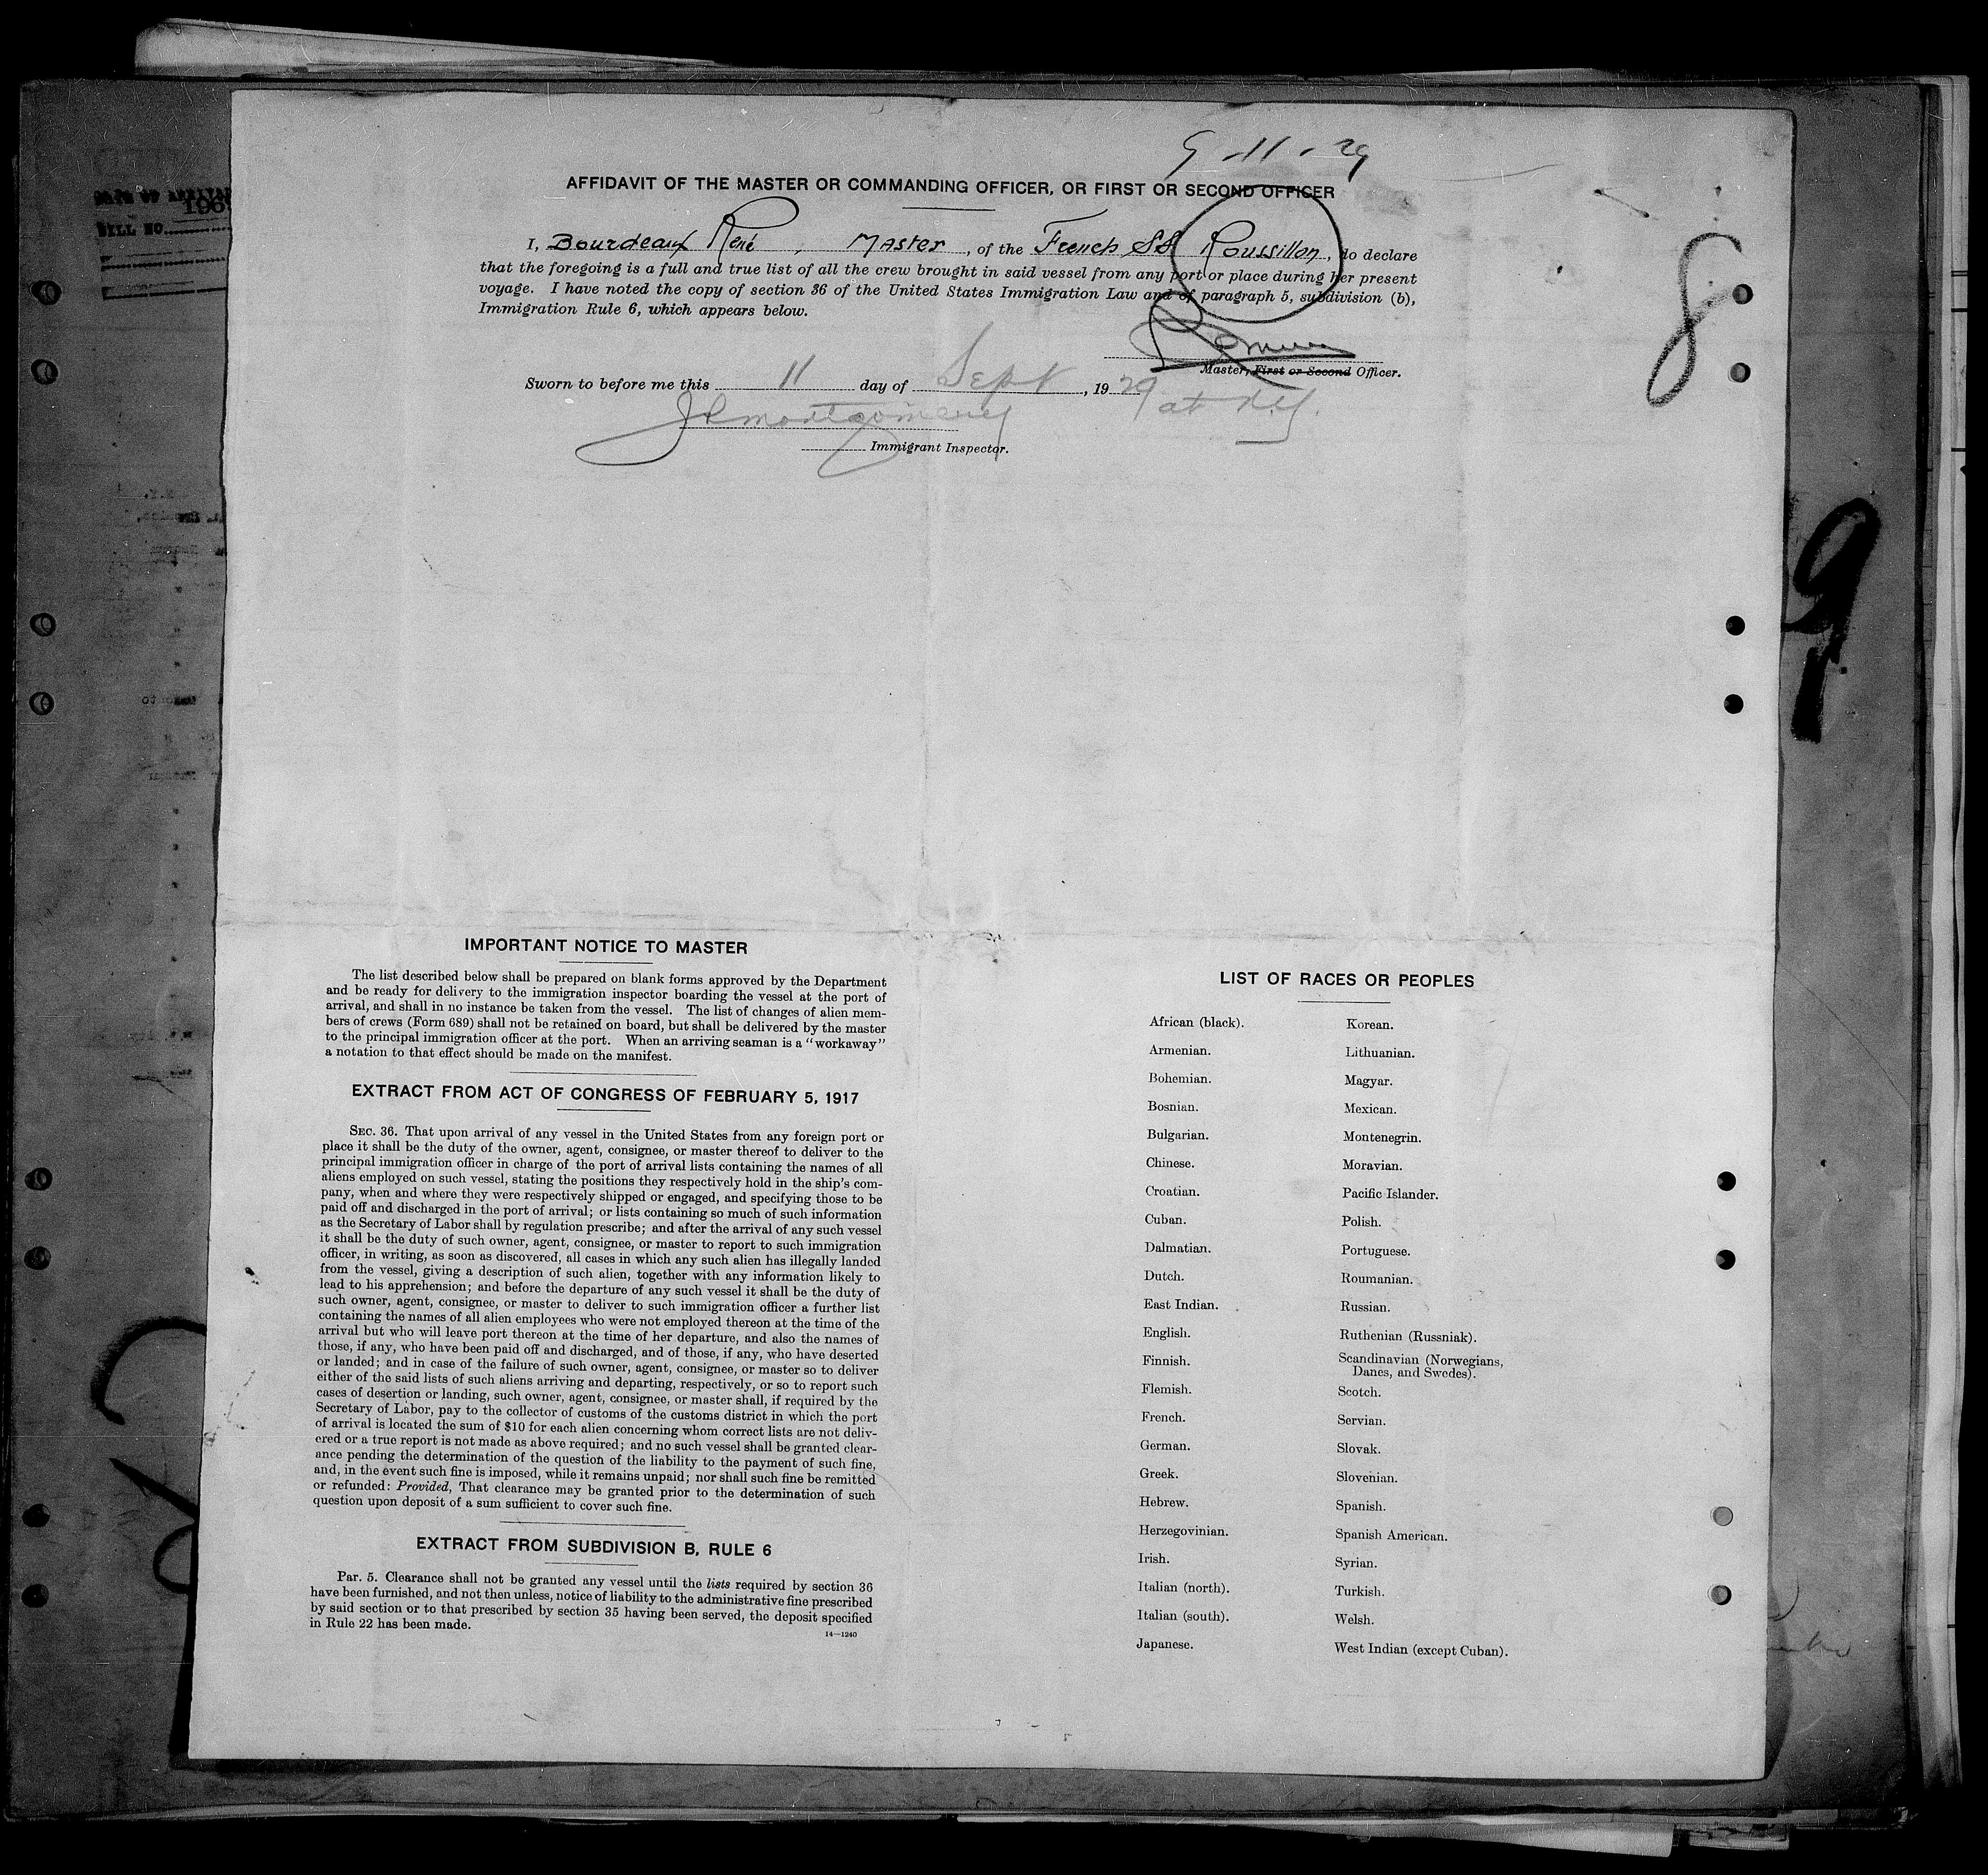 9-11-29
AFFIDAVIT OF THE MASTER OR COMMANDING OFFICER, OR FIRST OR SECOND OFFICER
I, Bourdeaux René, Master, of the French SS Roussillon, do declare
that the foregoing is a full and true list of all the crew brought in said vessel from any port or place during her present
voyage. I have noted the copy of section 36 of the United States Immigration Law and of paragraph 5, subdivision (b),
Immigration Rule 6, which appears below.
8
Master, First or Second Officer.
Sworn to before me this 11 day of Sept, 1929
at N.Y.
J R Montgomery
Immigrant Inspector.
9
IMPORTANT NOTICE TO MASTER
The list described below shall be prepared on blank forms approved by the Department
and be ready for delivery to the immigration inspector boarding the vessel at the port of
arrival, and shall in no instance be taken from the vessel. The list of changes of alien mem-
bers of crews (Form 689) shall not be retained on board, but shall be delivered by the master
to the principal immigration officer at the port. When an arriving seaman is a "workaway"
a notation to that effect should be made on the manifest.
EXTRACT FROM ACT OF CONGRESS OF FEBRUARY 5, 1917
SEC. 36. That upon arrival of any vessel in the United States from any foreign port or
place it shall be the duty of the owner, agent, consignee, or master thereof to deliver to the
principal immigration officer in charge of the port of arrival lists containing the names of all
aliens employed on such vessel, stating the positions they respectively hold in the ship's com-
pany, when and where they were respectively shipped or engaged, and specifying those to be
paid off and discharged in the port of arrival; or lists containing so much of such information
as the Secretary of Labor shall by regulation prescribe; and after the arrival of any such vessel
it shall be the duty of such owner, agent, consignee, or master to report to such immigration
officer, in writing, as soon as discovered, all cases in which any such alien has illegally landed
from the vessel, giving a description of such alien, together with any information likely to
lead to his apprehension; and before the departure of any such vessel it shall be the duty of
such owner, agent, consignee, or master to deliver to such immigration officer a further list
containing the names of all alien employees who were not employed thereon at the time of the
arrival but who will leave port thereon at the time of her departure, and also the names of
those, if any, who have been paid off and discharged, and of those, if any, who have deserted
or landed; and in case of the failure of such owner, agent, consignee, or master so to deliver
either of the said lists of such aliens arriving and departing, respectively, or so to report such
cases of desertion or landing, such owner, agent, consignee, or master shall, if required by the
Secretary of Labor, pay to the collector of customs of the customs district in which the port
of arrival is located the sum of $10 for each alien concerning whom correct lists are not deliv-
ered or a true report is not made as above required; and no such vessel shall be granted clear-
ance pending the determination of the question of the liability to the payment of such fine,
and, in the event such fine is imposed, while it remains unpaid; nor shall such fine be remitted
or refunded: Provided, That clearance may be granted prior to the determination of such
question upon deposit of a sum sufficient to cover such fine.
EXTRACT FROM SUBDIVISION B, RULE 6
Par. 5. Clearance shall not be granted any vessel until the lists required by section 36
have been furnished, and not then unless, notice of liability to the administrative fine prescribed
by said section or to that prescribed by section 35 having been served, the deposit specified
in Rule 22 has been made.
14—1240
LIST OF RACES OR PEOPLES
African (black).
Armenian.
Bohemian.
Bosnian.
Bulgarian.
Chinese.
Croatian.
Cuban.
Dalmatian.
Dutch.
East Indian.
English.
Finnish.
Flemish.
French.
German.
Greek.
Hebrew.
Herzegovinian.
Irish.
Italian (north).
Italian (south).
Japanese.
Korean.
Lithuanian.
Magyar.
Mexican.
Montenegrin.
Moravian.
Pacific Islander.
Polish.
Portuguese.
Roumanian.
Russian.
Ruthenian (Russniak).
Scandinavian (Norwegians,
Danes, and Swedes).
Scotch.
Servian.
Slovak.
Slovenian.
Spanish.
Spanish American.
Syrian.
Turkish.
Welsh.
West Indian (except Cuban).